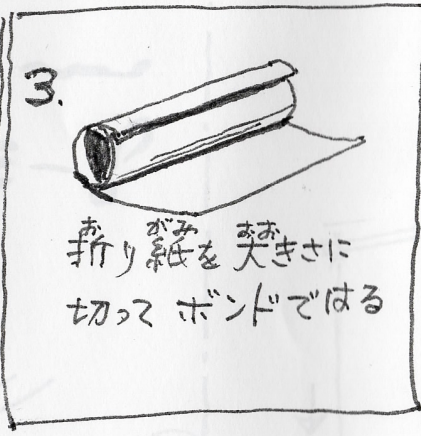 3.
折り紙を大きさに
切って ボンドではる